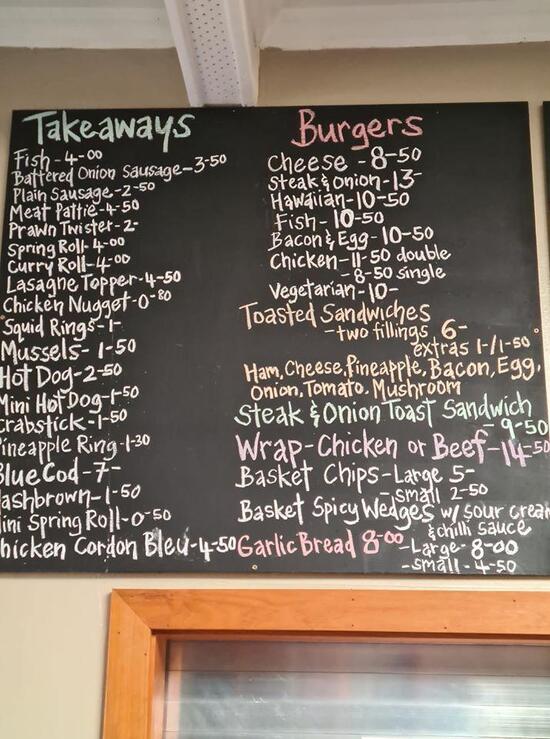 Takeaways
Fish - 4-00
Battered Onion Sausage - 3-50
Plain Sausage - 2-50
Meat Pattie - 4-50
Prawn Twister - 2-
Spring Roll - 4-00
Curry Roll - 4-00
Lasagne Topper - 4-50
Chicken Nugget - 0-80
Squid Rings - 1-
Mussels - 1-50
Hot Dog - 2-50
Mini Hot Dog - 1-50
Crabstick - 1-50
Pineapple Ring - 1-30
Blue Cod - 7-
ashbrown - 1-50
ini Spring Roll - 0-50
hicken Cordon Bleu - 4-50
Burgers
Cheese - 8-50
Steak & Onion - 13-
Hawaiian - 10-50
Fish - 10-50
Bacon & Egg - 10-50
Chicken - 11-50 double
- 8-50 single
Vegetarian - 10-
Toasted Sandwiches
- two fillings 6-
extras 1-/1-50
Ham, Cheese, Pineapple, Bacon, Egg,
Onion, Tomato, Mushroom
Steak & Onion Toast Sandwich
- 9-50
Wrap - Chicken or Beef - 14-50
Basket Chips - Large 5-
- small 2-50
Basket Spicy Wedges w/ sour cream
& chilli sauce
- Large - 8-00
- small - 4-50
Garlic Bread 8-00